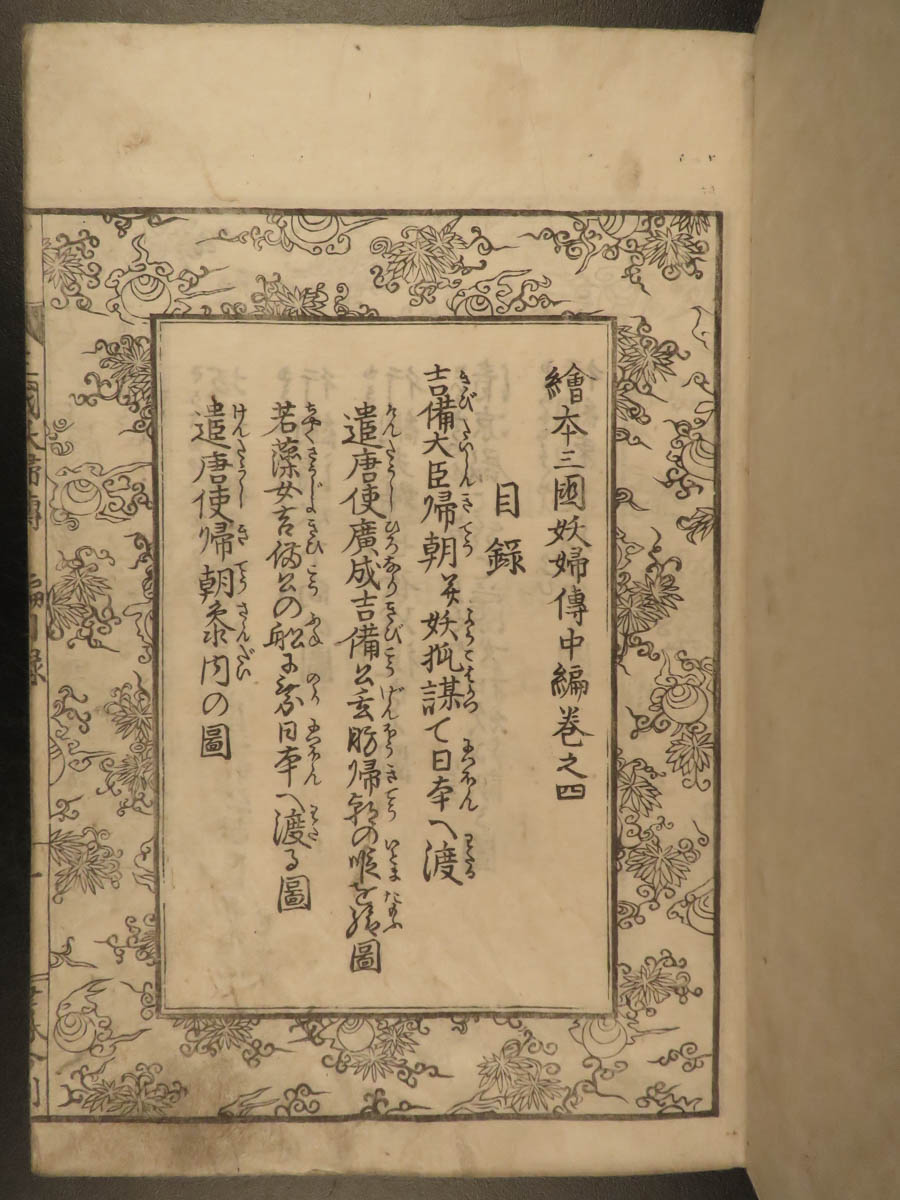 繪本三國妖婦傳中編巻之四
目錄
吉備大臣帰朝并妖狐謀て日本へ渡
遣唐使廣成吉備公玄昉帰朝の暇を賜圖
若藻女吉備公の舩に乗日本へ渡る圖
遣唐使帰朝参内の圖